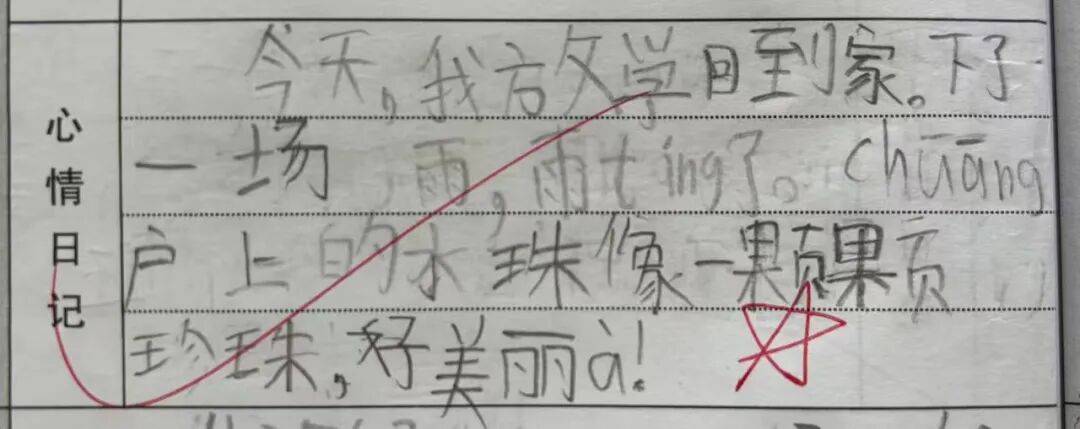 心情日记
今天,我方文学回到家。下了
一场雨,雨ting了。chuāng
户上的水珠像一颗颗
珍珠,好美丽à!